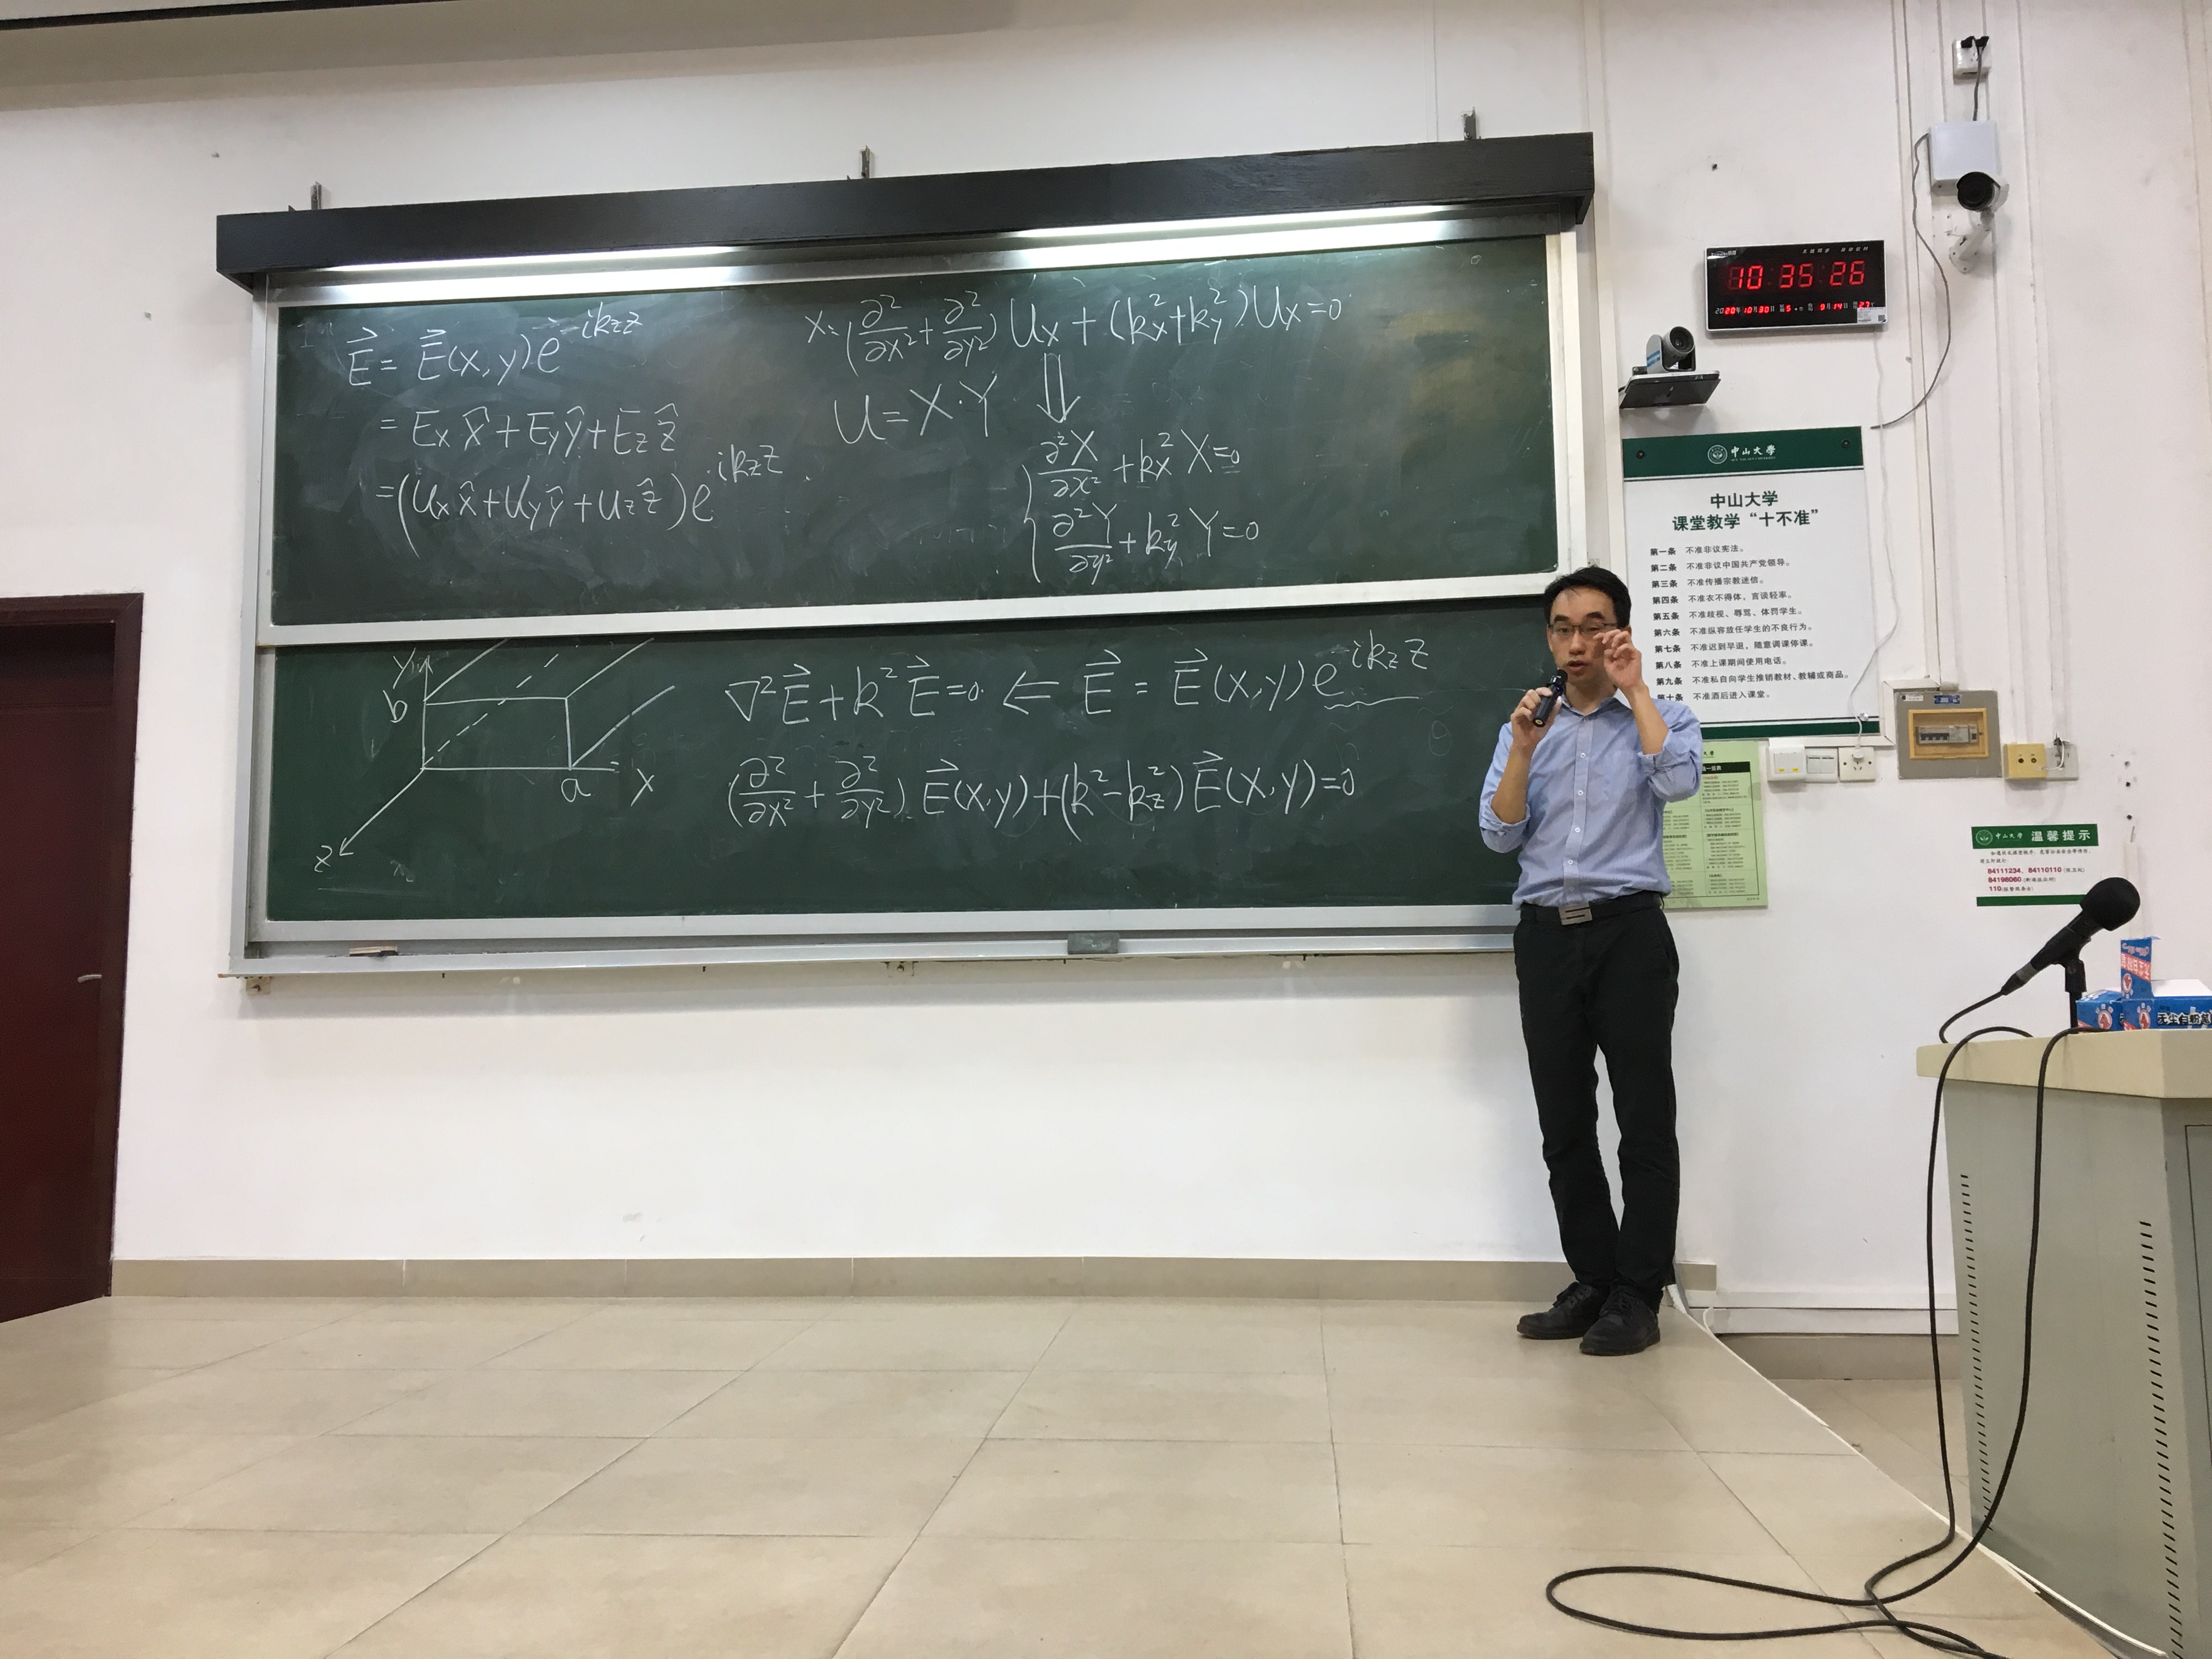 E⃗ = E⃗(x,y)e^{-ikzz}
= Ex x̂ + Ey ŷ + Ez ẑ
= (Ux x̂ + Uy ŷ + Uz ẑ)e^{ikzz}
x: (∂²/∂x² + ∂²/∂y²) Ux + (kx² + ky²) Ux = 0
U = X·Y
∂²X/∂x² + kx² X = 0
∂²Y/∂y² + ky² Y = 0
y
b
a x
z
∇²E⃗ + k²E⃗ = 0 ⇐ E⃗ = E⃗(x,y)e^{ikzz}
(∂²/∂x² + ∂²/∂y²) E⃗(x,y) + (k² - kz²) E⃗(x,y) = 0
10:35:26
2020年10月30日 5 9月14日 27
中山大学
中山大学
课堂教学“十不准”
第一条 不准非议宪法。
第二条 不准非议中国共产党领导。
第三条 不准传播宗教迷信。
第四条 不准衣不得体,言谈轻率。
第五条 不准歧视、辱骂、体罚学生。
第六条 不准纵容放任学生的不良行为。
第七条 不准迟到早退,随意调课停课。
第八条 不准上课期间使用电话。
第九条 不准私自向学生推销教材、教辅或商品。
第十条 不准酒后进入课堂。
中山大学 温馨提示
84111234、84110110
84198060
110
无尘白粉笔